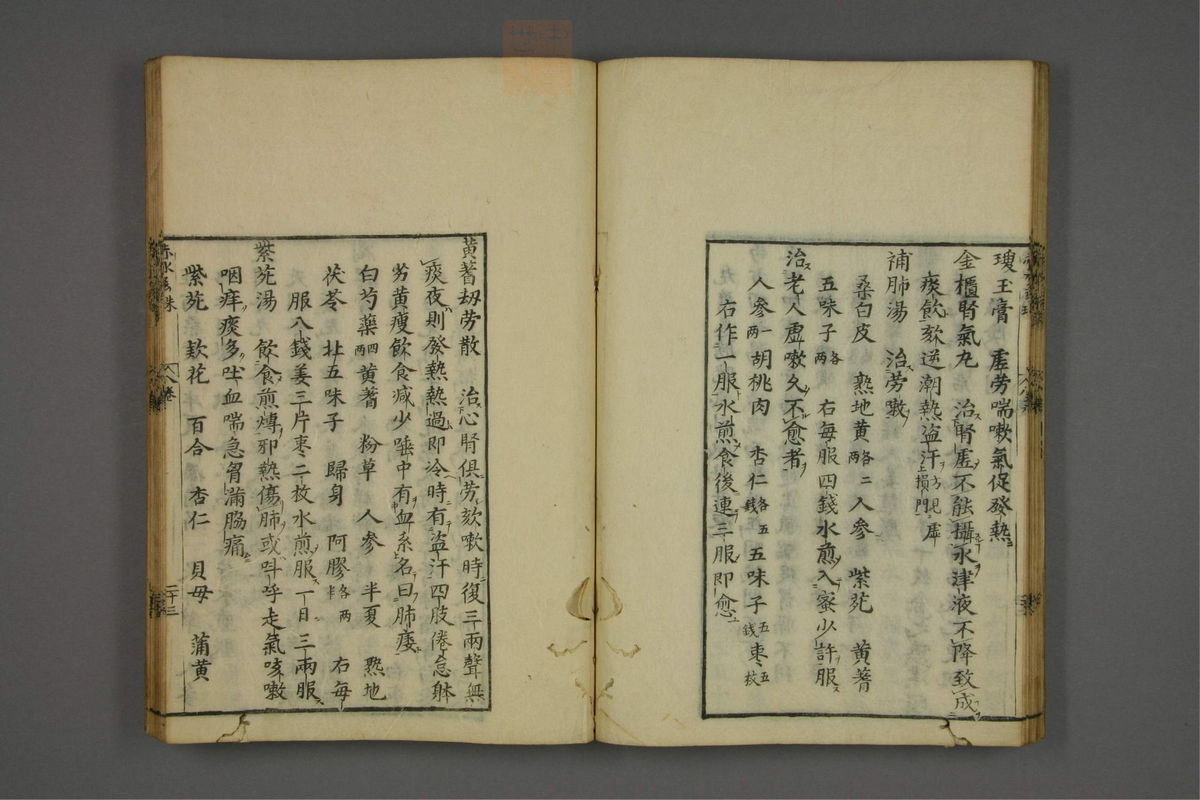 瓊玉膏 虚勞喘嗽氣促發熱
金櫃腎氣丸 治腎虚不能攝水津液不降致成
痰飲欬逆潮熱盗汗方見虚損門
補肺湯 治勞嗽
桑白皮 熟地黄各二兩 人參 紫菀 黄蓍
五味子各兩 右每服四錢水煎入蜜少許服
治老人虚嗽久不愈者
人參一兩 胡桃肉 杏仁各五錢 五味子五錢 枣五枚
右作一服水煎食後連三服即愈
黄蓍刼劳散 治心腎俱劳欬嗽時復三兩聲無
痰夜則發熱熱過即冷時有盗汗四肢倦怠躰
劣黄瘦飲食减少唾中有血系名曰肺痿
白芍藥四兩 黄蓍 粉草 人参 半夏 熟地
茯苓 北五味子 歸身 阿膠各半兩 右每
服八錢姜三片枣二枚水煎服一日三兩服
紫菀湯 飲食煎煿邪熱傷肺或呌呼走氣咳嗽
咽痒痰多吐血喘急胷滿脇痛
紫菀 欵花 百合 杏仁 貝母 蒲黄
赤水玄珠
八卷
二十三